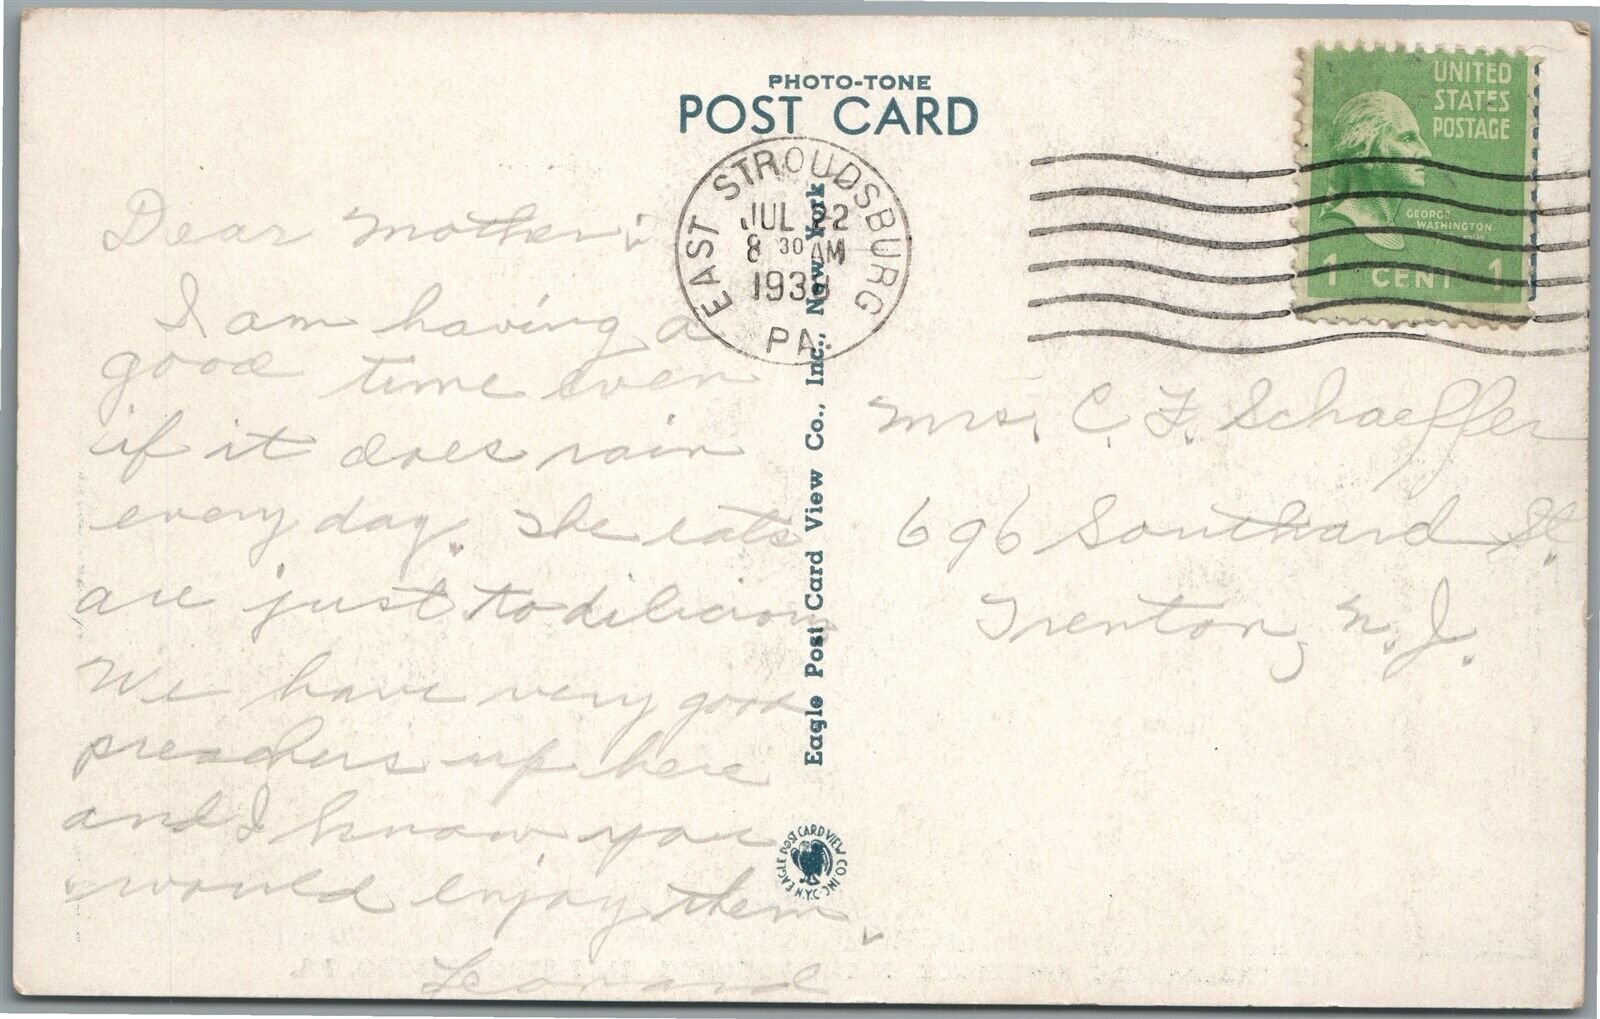 PHOTO-TONE
POST CARD
UNITED
STATES
POSTAGE
GEORGE
WASHINGTON
1 CENT 1
EAST STROUDSBURG
JUL 22
8 30 AM
1938
PA.
Dear Mother:
I am having a
good time even
if it does rain
every day. The eats
are just to delicious
We have very good
preachers up here
and I know you
would enjoy them.
Leonard
Eagle Post Card View Co., Inc., New York
EAGLE POST CARD VIEW CO. INC. N.Y.C.
Mrs. C. F. Schaeffer
696 Southard St.
Trenton, N. J.